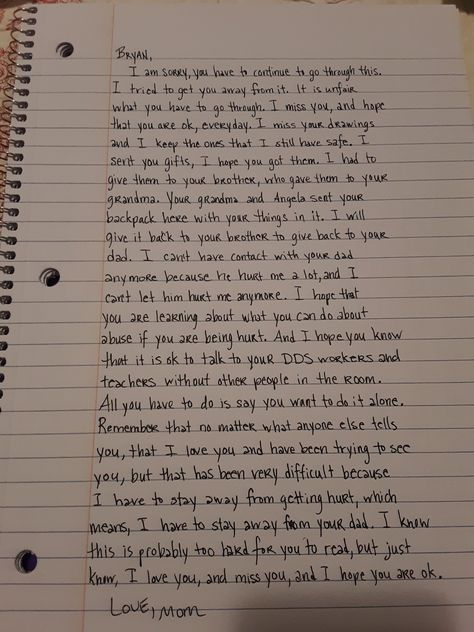 Bryan,
I am sorry, you have to continue to go through this.
I tried to get you away from it. It is unfair
what you have to go through. I miss you, and hope
that you are ok, everyday. I miss your drawings
and I keep the ones that I still have safe. I
sent you gifts, I hope you got them. I had to
give them to your brother, who gave them to your
grandma. Your grandma and Angela sent your
backpack here with your things in it. I will
give it back to your brother to give back to your
dad. I can't have contact with your dad
anymore because he hurt me a lot, and I
can't let him hurt me anymore. I hope that
you are learning about what you can do about
abuse if you are being hurt. And I hope you know
that it is ok to talk to your DDS workers and
teachers without other people in the room.
All you have to do is say you want to do it alone.
Remember that no matter what anyone else tells
you, that I love you and have been trying to see
you, but that has been very difficult because
I have to stay away from getting hurt, which
means, I have to stay away from your dad. I know
this is probably too hard for you to read, but just
know, I love you, and miss you, and I hope you are ok.
Love, Mom